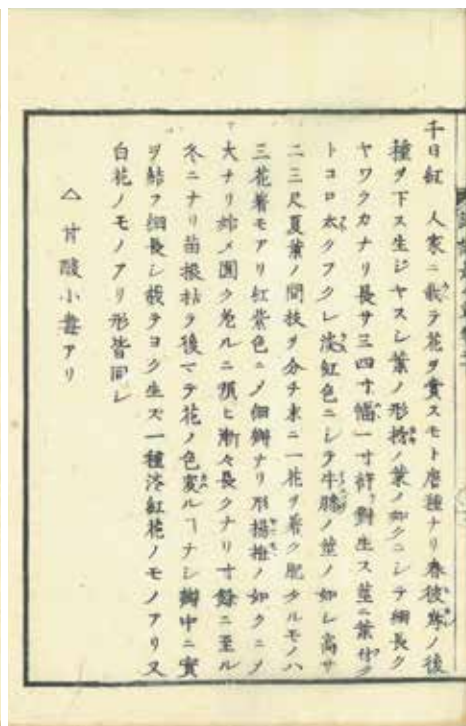 千日紅 人家ニ栽テ花ヲ賞スモト唐種ナリ春彼岸ノ後
種ヲ下ス生ジヤスシ葉ノ形檐ノ葉ノ如クニシテ細長ク
ヤワラカナリ長サ三四寸幅一寸許對生ス莖ニ葉付ク
トコロ太クフクレ淡紅色ニシテ牛膝ノ莖ノ如レ高サ
二三尺夏葉ノ間枝ヲ分チ末ニ一花ヲ着ク肥タルモノハ
三花着モアリ紅紫色ニノ細瓣ナリ形楊梅ノ如クニノ
大ナリ始メ圓ク老ルニ順ヒ漸々長クナリ寸餘ニ至ル
冬ニナリ苗根枯ヲ後マテ花ノ色変ルヿナシ瓣中ニ實
ヲ結フ細長シ栽テヨク生ズ一種淡紅花ノモノアリ又
白花ノモノアリ形皆同レ
△ 甘酸小毒アリ